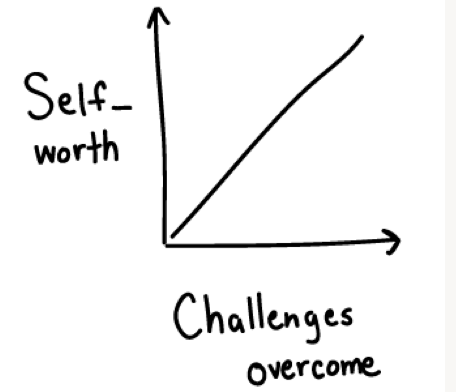 Self-
worth
Challenges
overcome